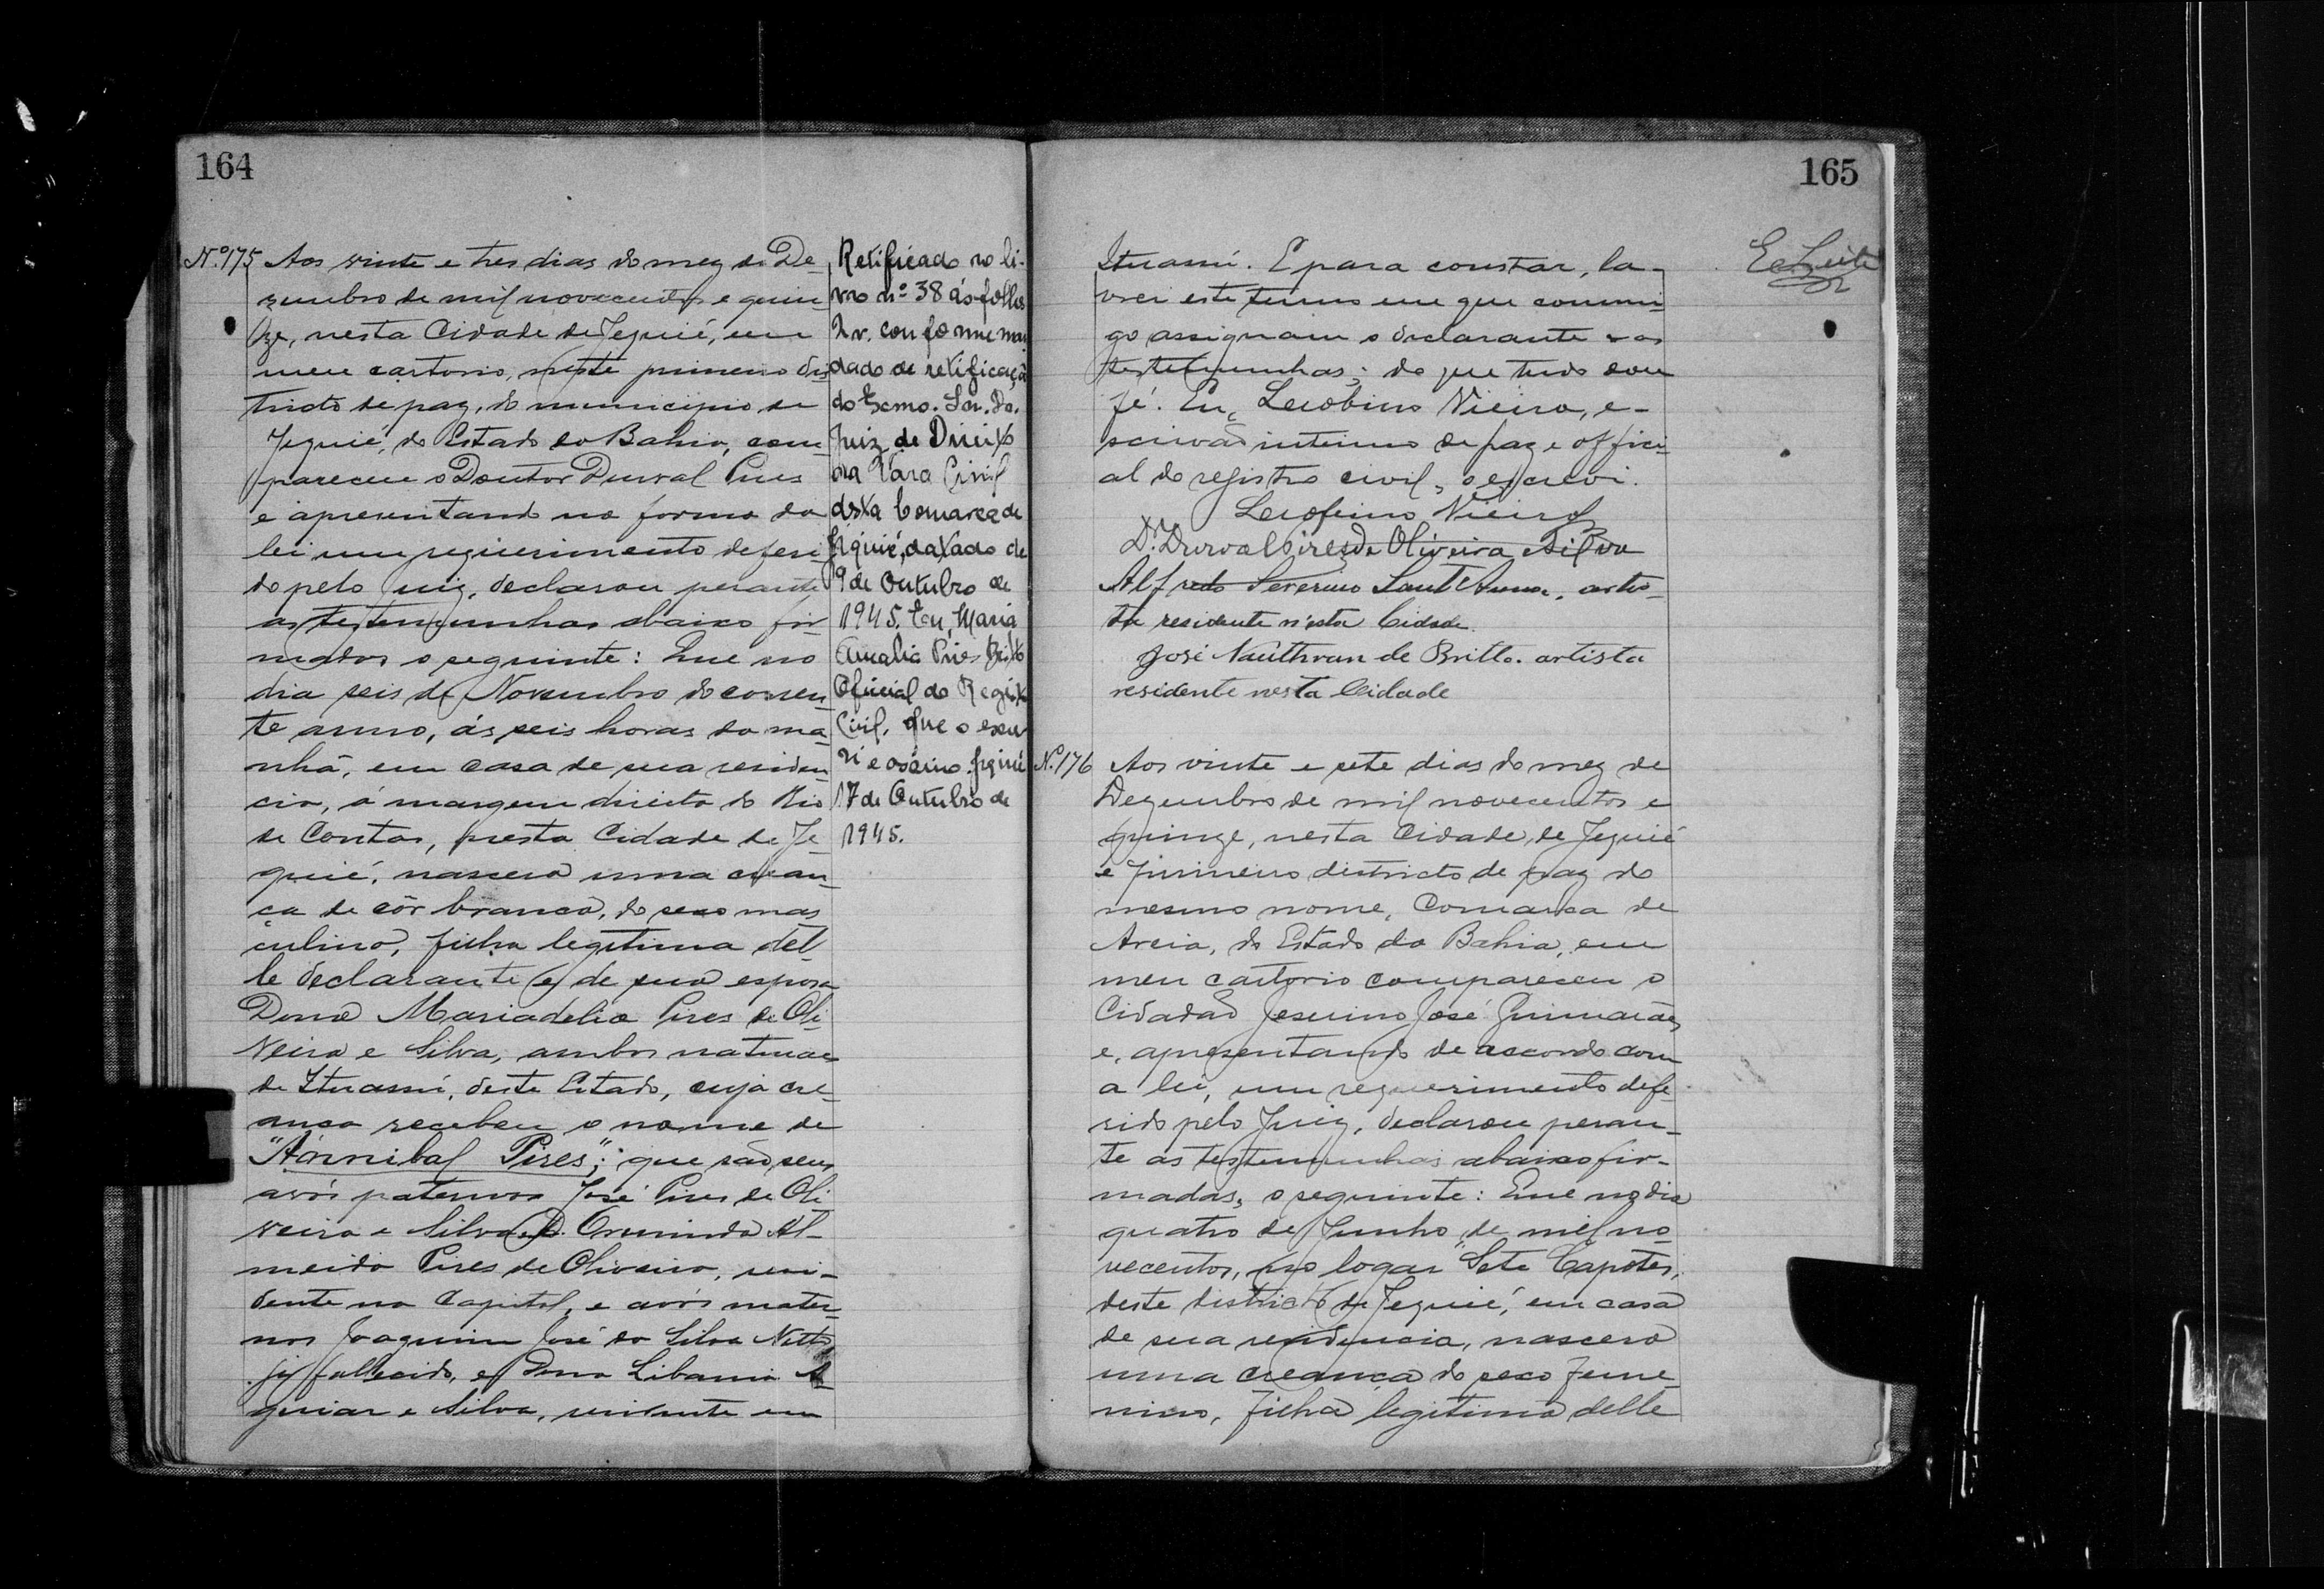 164
Nº 175 Aos vinte e tres dias do mez de De-
zembro de mil novecentos e quin-
ze, nesta Cidade de Jequié, em
meu cartorio, neste primeiro dis-
tricto de paz, do municipio de
Jequié, do Estado da Bahia, com-
pareceu o Doutor Durval Pires
e apresentando na forma da
lei um requerimento deferi-
do pelo Juiz, declarou perante
as testemunhas abaixo fir-
madas o seguinte: Que no
dia seis de Novembro do corren-
te anno, ás seis horas da ma-
nhã, em casa de sua residen-
cia, á margem direita do Rio
de Contas, nesta Cidade de Je-
quié, nasceu uma crean-
ça de côr branca, do sexo mas
culino, filha legitima del-
le declarante e de sua esposa
Dona Mariadelia Pires de Oli-
veira e Silva, ambos naturaes
de Ituassú, deste Estado, cuja cre-
ança recebeu o nome de
"Annibal Pires"; que são seus
avós paternos José Pires de Oli-
veira e Silva e D. Erminda Al-
meida Pires de Oliveira, resi-
dente na Capital, e avós mater-
nos Joaquim José da Silva Netto,
já fallecido, e Dona Libania A-
guiar e Silva, residente em
Retificado no li-
vro nº 38 ás folhas
2v. conforme man
dado de retificação
do Exmo. Snr. Dr.
Juiz de Direito
da Vara Civil
desta Comarca de
Jequié, datado de
9 de Outubro de
1945. Eu, Maria
Amalia Pires Brito
Oficial do Registro
Civil, que o escre
vi e assino. Jequié
17 de Outubro de
1945.
165
Ituassú. E para constar, la-
vrei este termo em que commi-
go assignam o declarante e as
testemunhas; do que tudo dou
fé. Eu, Leobino Vieira, e-
scrivão interino de paz e offici-
al do registro civil, o escrevi.
Vieira
Dr. Durval Pires de Oliveira e Silva
Alfredo Severino Sant'Anna, artis-
ta residente n'esta Cidade.
José de Britto. artista
residente nesta Cidade
Nº 176 Aos vinte e sete dias do mez de
Dezembro de mil novecentos e
quinze, nesta Cidade de Jequié
e primeiro districto de paz do
mesmo nome, Comarca de
Areia, do Estado da Bahia, em
meu cartorio compareceu o
Cidadão Jesuino José Guimarães
e, apresentando de accordo com
a lei, um requerimento defe-
rido pelo Juiz, declarou peran-
te as testemunhas abaixo fir-
madas, o seguinte: Que no dia
quatro de Junho de mil no-
vecentos, no logar "Sete Capotes,
deste districto de Jequié, em casa
de sua residencia, nasceu
uma creança do sexo feme-
nino, filha legitima delle